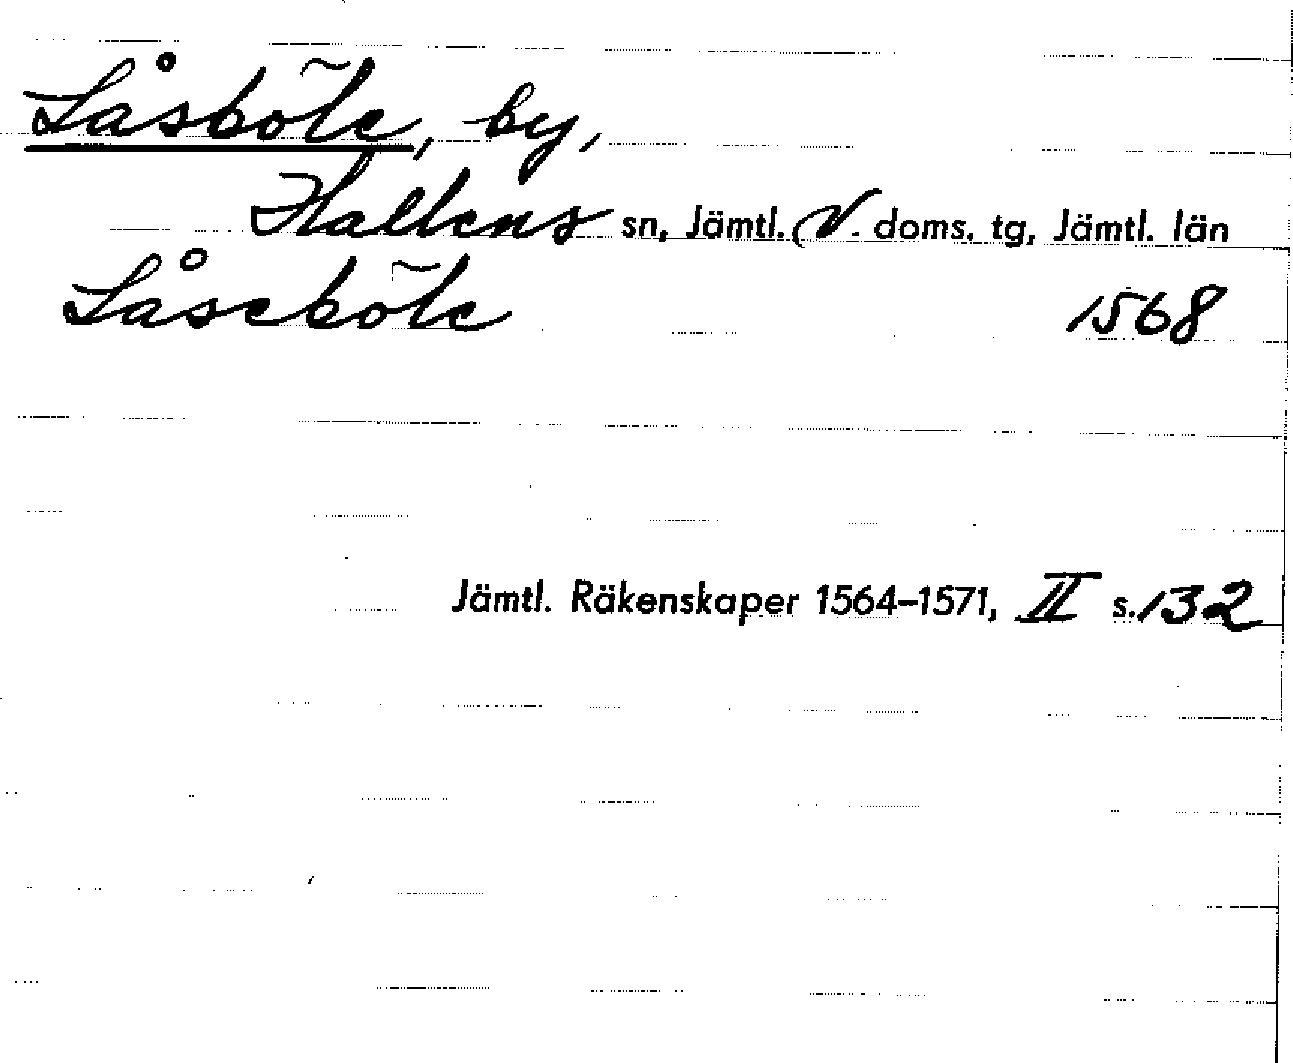 Låsböle, by,
Hallens sn, Jämtl. V. doms. tg, Jämtl. län
Låseböle 1568
Jämtl. Räkenskaper 1564–1571, II s. 132